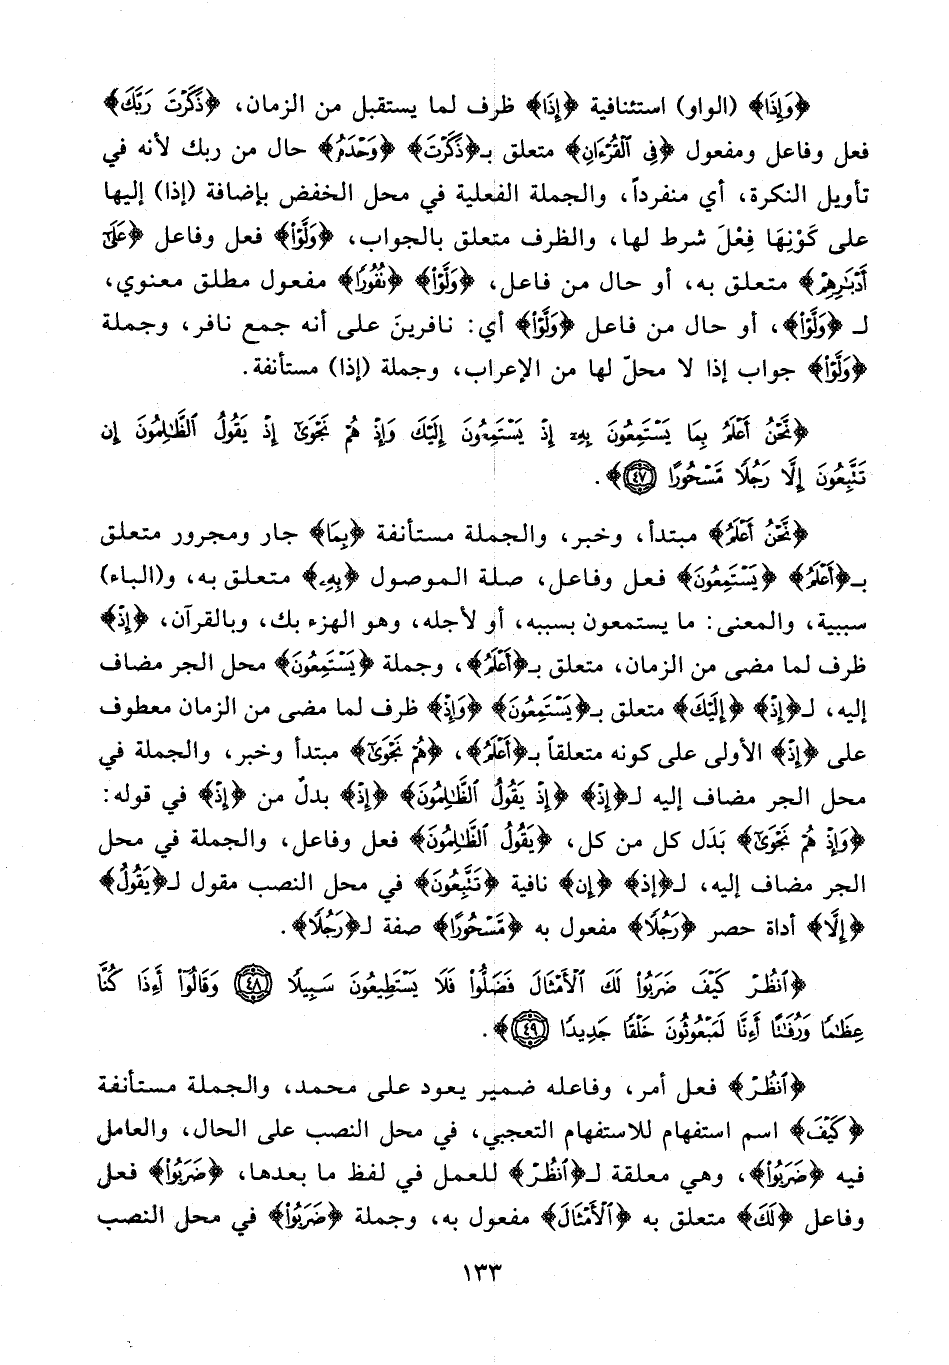 ﴿وَإِذَا﴾ (الواو) استئنافية ﴿إِذَا﴾ ظرف لما يستقبل من الزمان، ﴿ذَكَرْتَ رَبَّكَ﴾
فعل وفاعل ومفعول ﴿فِى ٱلْقُرْءَانِ﴾ متعلق بـ﴿ذَكَرْتَ﴾ ﴿وَحْدَهُۥ﴾ حال من ربك لأنه في
تأويل النكرة، أي منفرداً، والجملة الفعلية في محل الخفض بإضافة (إذا) إليها
على كَوْنِهَا فِعْلَ شرط لها، والظرف متعلق بالجواب، ﴿وَلَّوْا۟﴾ فعل وفاعل ﴿عَلَىٰٓ
أَدْبَٰرِهِمْ﴾ متعلق به، أو حال من فاعل، ﴿وَلَّوْا۟﴾ ﴿نُفُورًا﴾ مفعول مطلق معنوي،
لـ ﴿وَلَّوْا۟﴾، أو حال من فاعل ﴿وَلَّوْا۟﴾ أي: نافرينَ على أنه جمع نافر، وجملة
﴿وَلَّوْا۟﴾ جواب إذا لا محلّ لها من الإعراب، وجملة (إذا) مستأنفة.
﴿نَّحْنُ أَعْلَمُ بِمَا يَسْتَمِعُونَ بِهِۦٓ إِذْ يَسْتَمِعُونَ إِلَيْكَ وَإِذْ هُمْ نَجْوَىٰٓ إِذْ يَقُولُ ٱلظَّٰلِمُونَ إِن
تَتَّبِعُونَ إِلَّا رَجُلًا مَّسْحُورًا ٤٧﴾.
﴿نَّحْنُ أَعْلَمُ﴾ مبتدأ، وخبر، والجملة مستأنفة ﴿بِمَا﴾ جار ومجرور متعلق
بـ﴿أَعْلَمُ﴾ ﴿يَسْتَمِعُونَ﴾ فعل وفاعل، صلة الموصول ﴿بِهِۦ﴾ متعلق به، و(الباء)
سببية، والمعنى: ما يستمعون بسببه، أو لأجله، وهو الهزء بك، وبالقرآن، ﴿إِذْ﴾
ظرف لما مضى من الزمان، متعلق بـ﴿أَعْلَمُ﴾، وجملة ﴿يَسْتَمِعُونَ﴾ محل الجر مضاف
إليه، لـ﴿إِذْ﴾ ﴿إِلَيْكَ﴾ متعلق بـ﴿يَسْتَمِعُونَ﴾ ﴿وَإِذْ﴾ ظرف لما مضى من الزمان معطوف
على ﴿إِذْ﴾ الأولى على كونه متعلقاً بـ﴿أَعْلَمُ﴾، ﴿هُمْ نَجْوَىٰٓ﴾ مبتدأ وخبر، والجملة في
محل الجر مضاف إليه لـ﴿إِذْ﴾ ﴿إِذْ يَقُولُ ٱلظَّٰلِمُونَ﴾ ﴿إِذْ﴾ بدلٌ من ﴿إِذْ﴾ في قوله:
﴿وَإِذْ هُمْ نَجْوَىٰٓ﴾ بَدَل كل من كل، ﴿يَقُولُ ٱلظَّٰلِمُونَ﴾ فعل وفاعل، والجملة في محل
الجر مضاف إليه، لـ﴿إذ﴾ ﴿إِن﴾ نافية ﴿تَتَّبِعُونَ﴾ في محل النصب مقول لـ﴿يَقُولُ﴾
﴿إِلَّا﴾ أداة حصر ﴿رَجُلًا﴾ مفعول به ﴿مَّسْحُورًا﴾ صفة لـ﴿رَجُلًا﴾.
﴿ٱنظُرْ كَيْفَ ضَرَبُوا۟ لَكَ ٱلْأَمْثَالَ فَضَلُّوا۟ فَلَا يَسْتَطِيعُونَ سَبِيلًا ٤٨ وَقَالُوٓا۟ أَءِذَا كُنَّا
عِظَٰمًا وَرُفَٰتًا أَءِنَّا لَمَبْعُوثُونَ خَلْقًا جَدِيدًا ٤٩﴾.
﴿ٱنظُرْ﴾ فعل أمر، وفاعله ضمير يعود على محمد، والجملة مستأنفة
﴿كَيْفَ﴾ اسم استفهام للاستفهام التعجبي، في محل النصب على الحال، والعامل
فيه ﴿ضَرَبُوا۟﴾، وهي معلقة لـ﴿ٱنظُرْ﴾ للعمل في لفظ ما بعدها، ﴿ضَرَبُوا۟﴾ فعل
وفاعل ﴿لَكَ﴾ متعلق به ﴿ٱلْأَمْثَالَ﴾ مفعول به، وجملة ﴿ضَرَبُوا۟﴾ في محل النصب
١٣٣